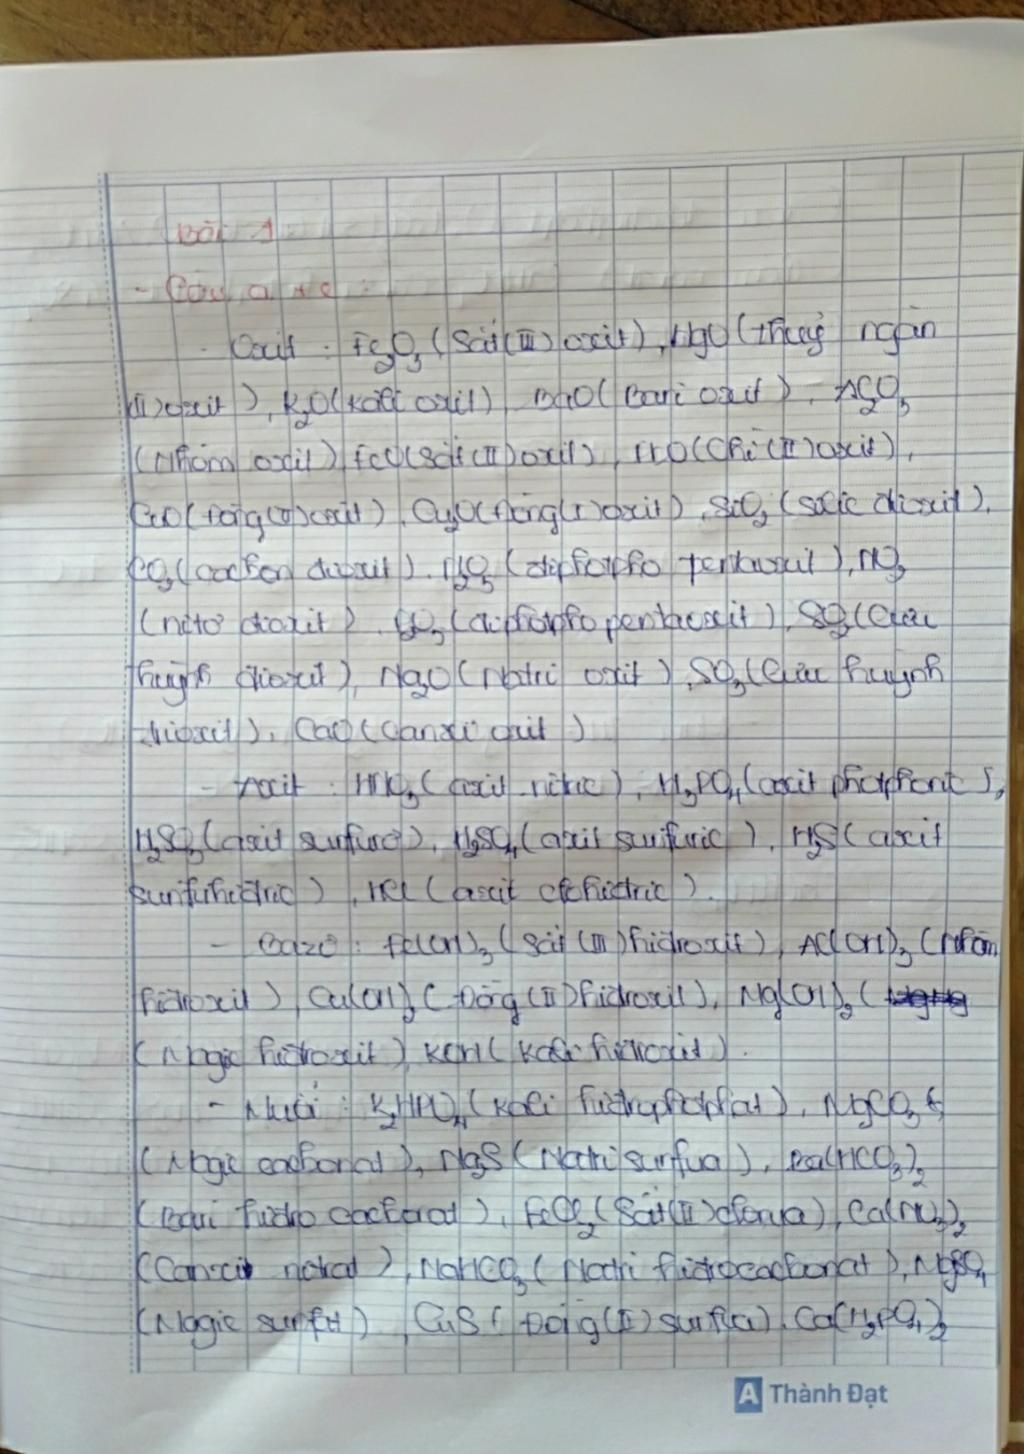 Bài 1
- Câu a + c :
- Oxit : Fe₂O₃ (Sắt(III) oxit), HgO (thuỷ ngân
(II) oxit), K₂O (Kali oxit), BaO (Bari oxit), Al₂O₃
(Nhôm oxit) FeO (Sắt (II) oxit), PbO (Chì (II) oxit),
CuO (Đồng(II) oxit), Cu₂O (Đồng(I) oxit), SiO₂ (silic đioxit),
CO₂ (cacbon đioxit), P₂O₅ (điphotpho pentaoxit), NO₂
(nitơ đioxit), (điphotpho pentaoxit), SO₂ (lưu
huỳnh đioxit), Na₂O (Natri oxit), SO₃ (lưu huỳnh
CaO (Canxi oxit)
- Axit : HNO₃ (axit nitric), H₃PO₄ (axit photphoric),
H₂SO₃ (axit sunfurơ), H₂SO₄ (axit sunfuric), H₂S (axit
sunfuhiđric), HCl (axit clohiđric).
- Bazơ : Fe(OH)₃ (Sắt (III) hiđroxit), Al(OH)₃ (Nhôm
hiđroxit), Cu(OH)₂ (Đồng (II) hiđroxit), Mg(OH)₂ (
(Magie hiđroxit), KOH (Kali hiđroxit).
- Muối : K₂HPO₄ (Kali hiđrophotphat), MgCO₃
(Magie cacbonat), Na₂S (Natri sunfua), Ba(HCO₃)₂
(Bari hiđro cacbonat), FeCl₂ (Sắt(II) clorua), Ca(NO₃)₂
(Canxi nitrat), NaHCO₃ (Natri hiđrocacbonat), MgSO₄
(Magie sunfat), CuS (Đồng(II) sunfua), Ca(H₂PO₄)₂
A Thành Đạt